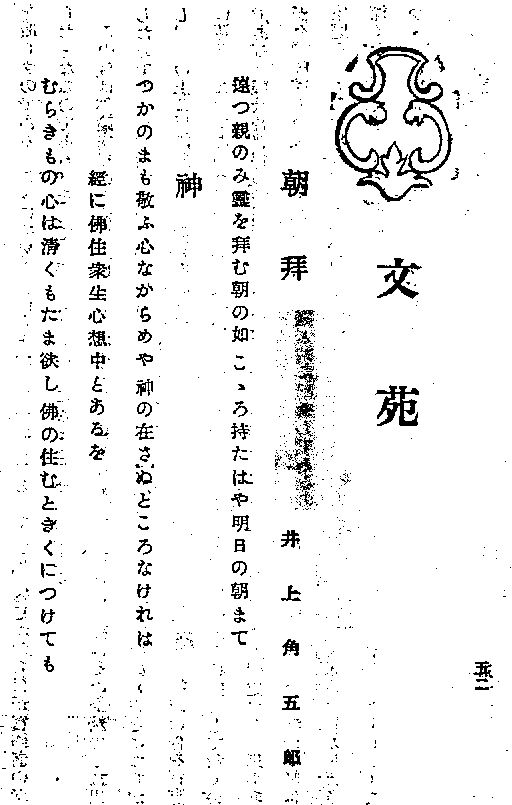 五二
文苑
朝拜
井上角五郎
遠つ親のみ靈を拜む朝の如こゝろ持たはや明日の朝まて
神
つかのまも敬ふ心なからめや神の在さぬところなけれは
經に佛住衆生心想中とあるを
むらきもの心は清くもたま欲し佛の住むときくにつけても